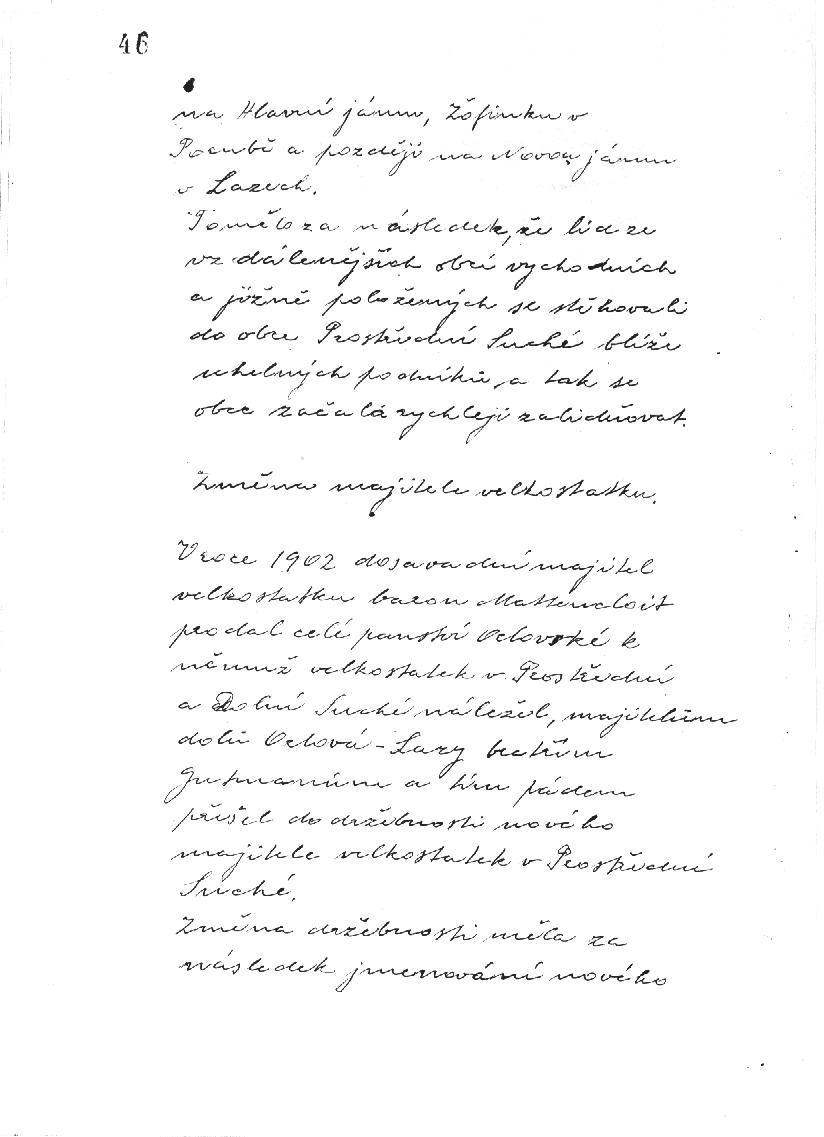 46
na Hlavní jámu, Žofinku v
Porubě a později na Novou jámu
v Lazech.
To mělo za následek, že lid ze
vzdálenějších obcí vychodních
a jižně položenných se stěhovali
do obce Prostřední Suché blíže
uhelných podniků, a tak se
obec začalá rychleji zalidňovat.
Změna majitele velkostatku.
V roce 1902 dosavadní majitel
velkostatku baron Mattencloit
prodal celé panství Orlovské k
němuž velkostatek v Prostřední
a Dolní Suché náležel, majitelům
dolů Orlová - Lazy bratřím
Gutmanům a tím pádem
přišel do držebnosti nového
majitele velkostatek v Prostřední
Suché.
Změna držebnosti měla za
následek jmenování nového